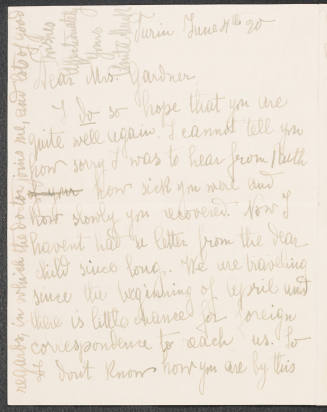 Turin June 4th 20
Dear Mrs. Gardner,
I do so hope that you are
quite well again. I cannot tell you
how sorry I was to hear from Ruth
of your how sick you were and
how slowly you recovered. Now I
havent had a letter from the dear
child since long. We are traveling
since the beginning of april and
there is little chance for foreign
correspondence to reach us. So
I dont know how you are by this
regards, in which the doctor joins me, and lots of good
wishes
affectionately
yours